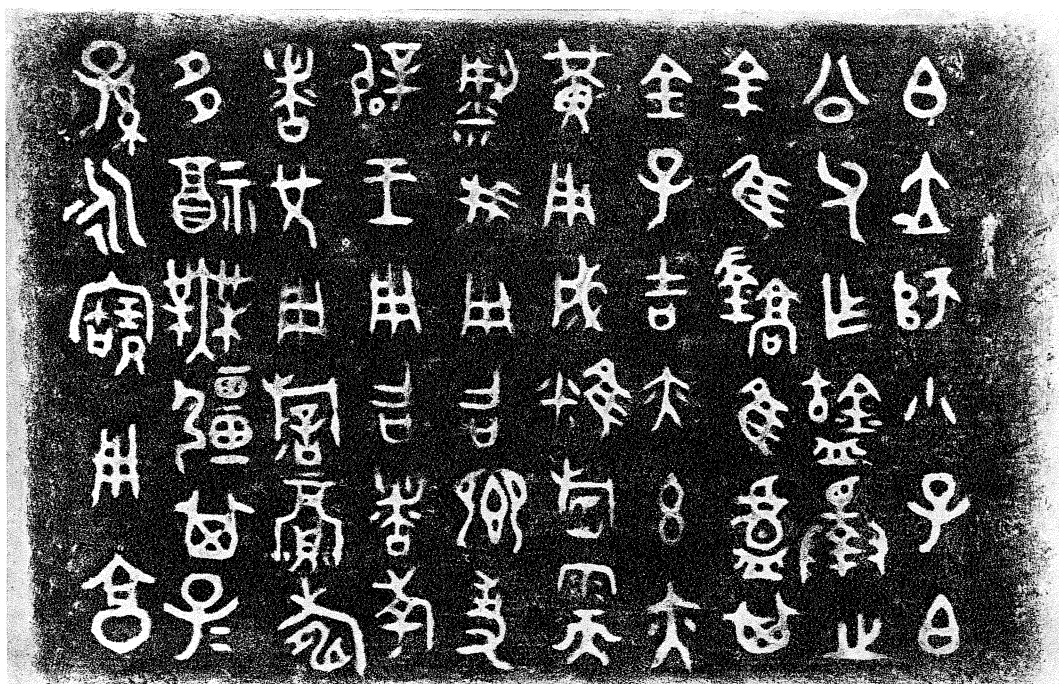 白大師小子白
公父乍𥂴擇之
金隹鐈隹盧其
金孔吉亦玄亦
黃用成糕稻需
粱我用召卿事
辟王用召者考
者兄用旂眉壽
多福無疆其子=
孫=永寶用享